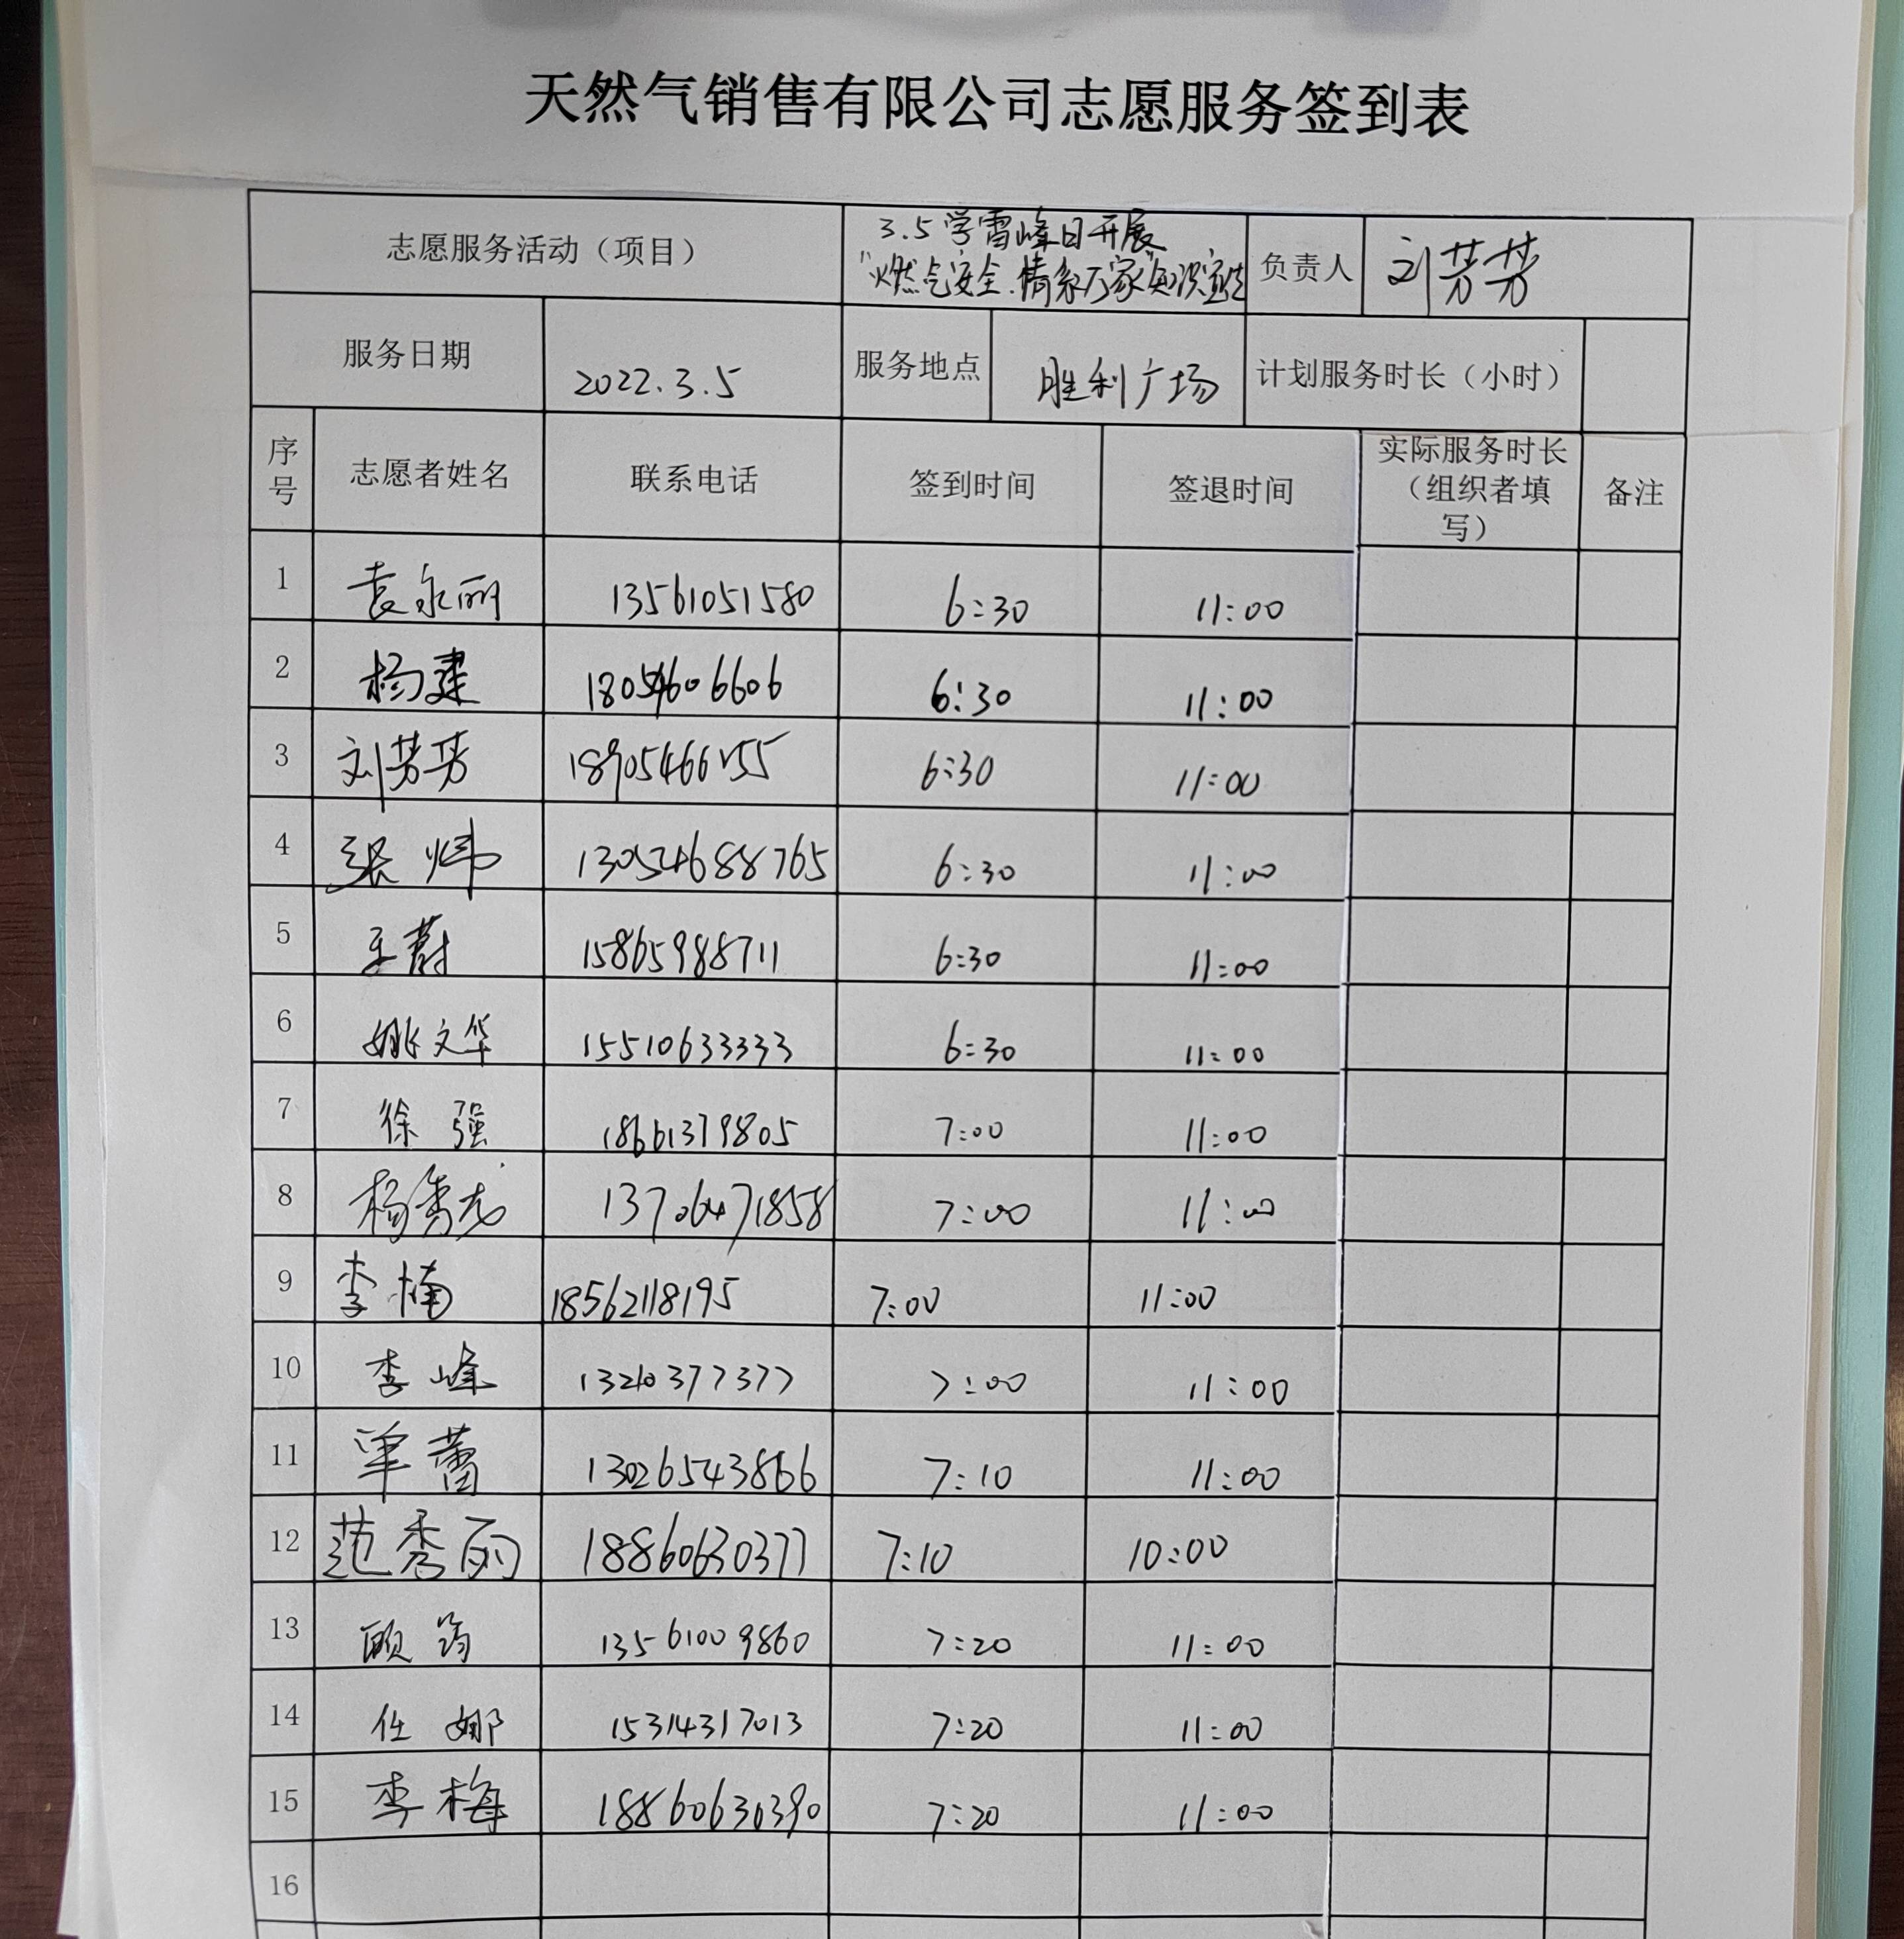 天然气销售有限公司志愿服务签到表
志愿服务活动（项目） 3.5学雷峰日开展 负责人 刘芳芳
"燃气安全.情系万家"知识宣传
服务日期 2022.3.5 服务地点 胜利广场 计划服务时长（小时）
序号 志愿者姓名 联系电话 签到时间 签退时间 实际服务时长（组织者填写） 备注
1 袁永丽 13561051580 6:30 11:00
2 杨建 18054606606 6:30 11:00
3 刘芳芳 18905466155 6:30 11:00
4 张炜 13054688765 6:30 11:00
5 王蔚 15865988711 6:30 11:00
6 姚文华 15510633333 6:30 11:00
7 徐强 18661379805 7:00 11:00
8 杨秀龙 13706471858 7:00 11:00
9 李楠 18562118195 7:00 11:00
10 李峰 13210377377 7:00 11:00
11 单蕾 13026543866 7:10 11:00
12 范秀丽 18860630377 7:10 10:00
13 顾筠 13561009860 7:20 11:00
14 任娜 15314317013 7:20 11:00
15 李梅 18860630390 7:20 11:00
16